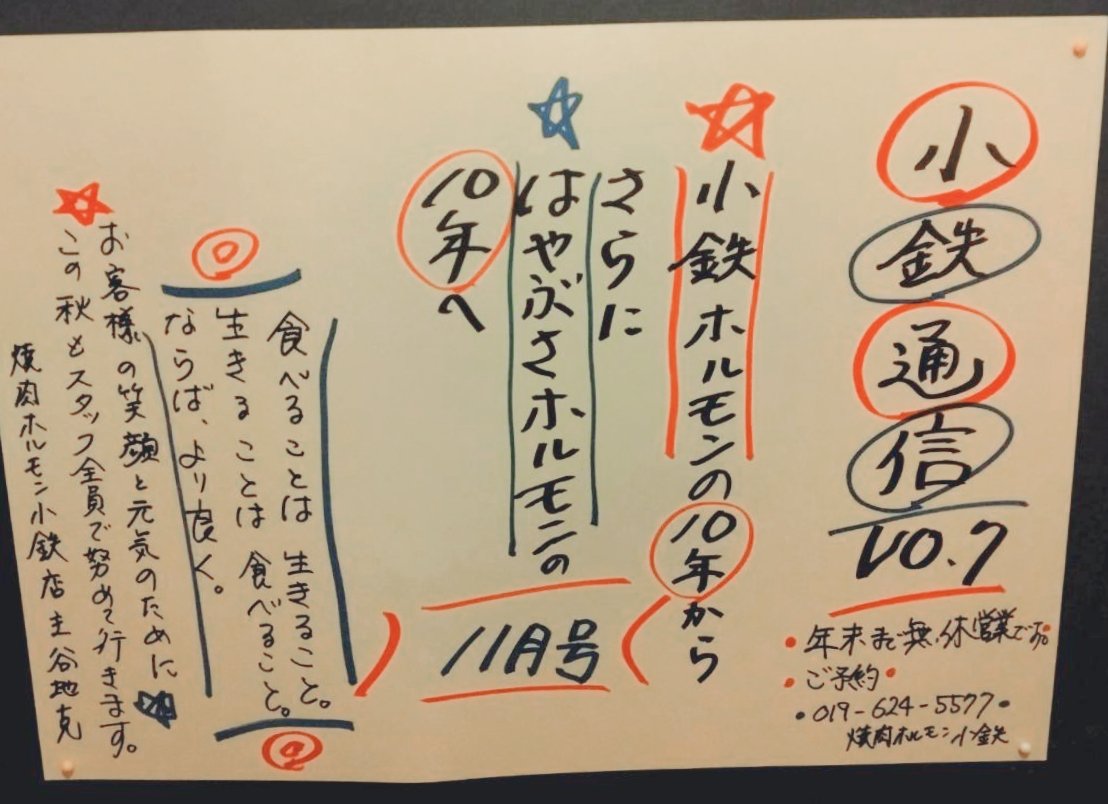 小鉄通信
VO.7
・年末まで無休営業です。
・ご予約・
・019-624-5577・
焼肉ホルモン小鉄
小鉄ホルモンの10年から
さらに
はやぶさホルモンの
10年へ
(11月号)
食べることは 生きること。
生きることは 食べること。
ならば、より良く。
お客様の笑顔と元気のために
この秋もスタッフ全員で努めて行きます。
焼肉ホルモン小鉄店主谷地克